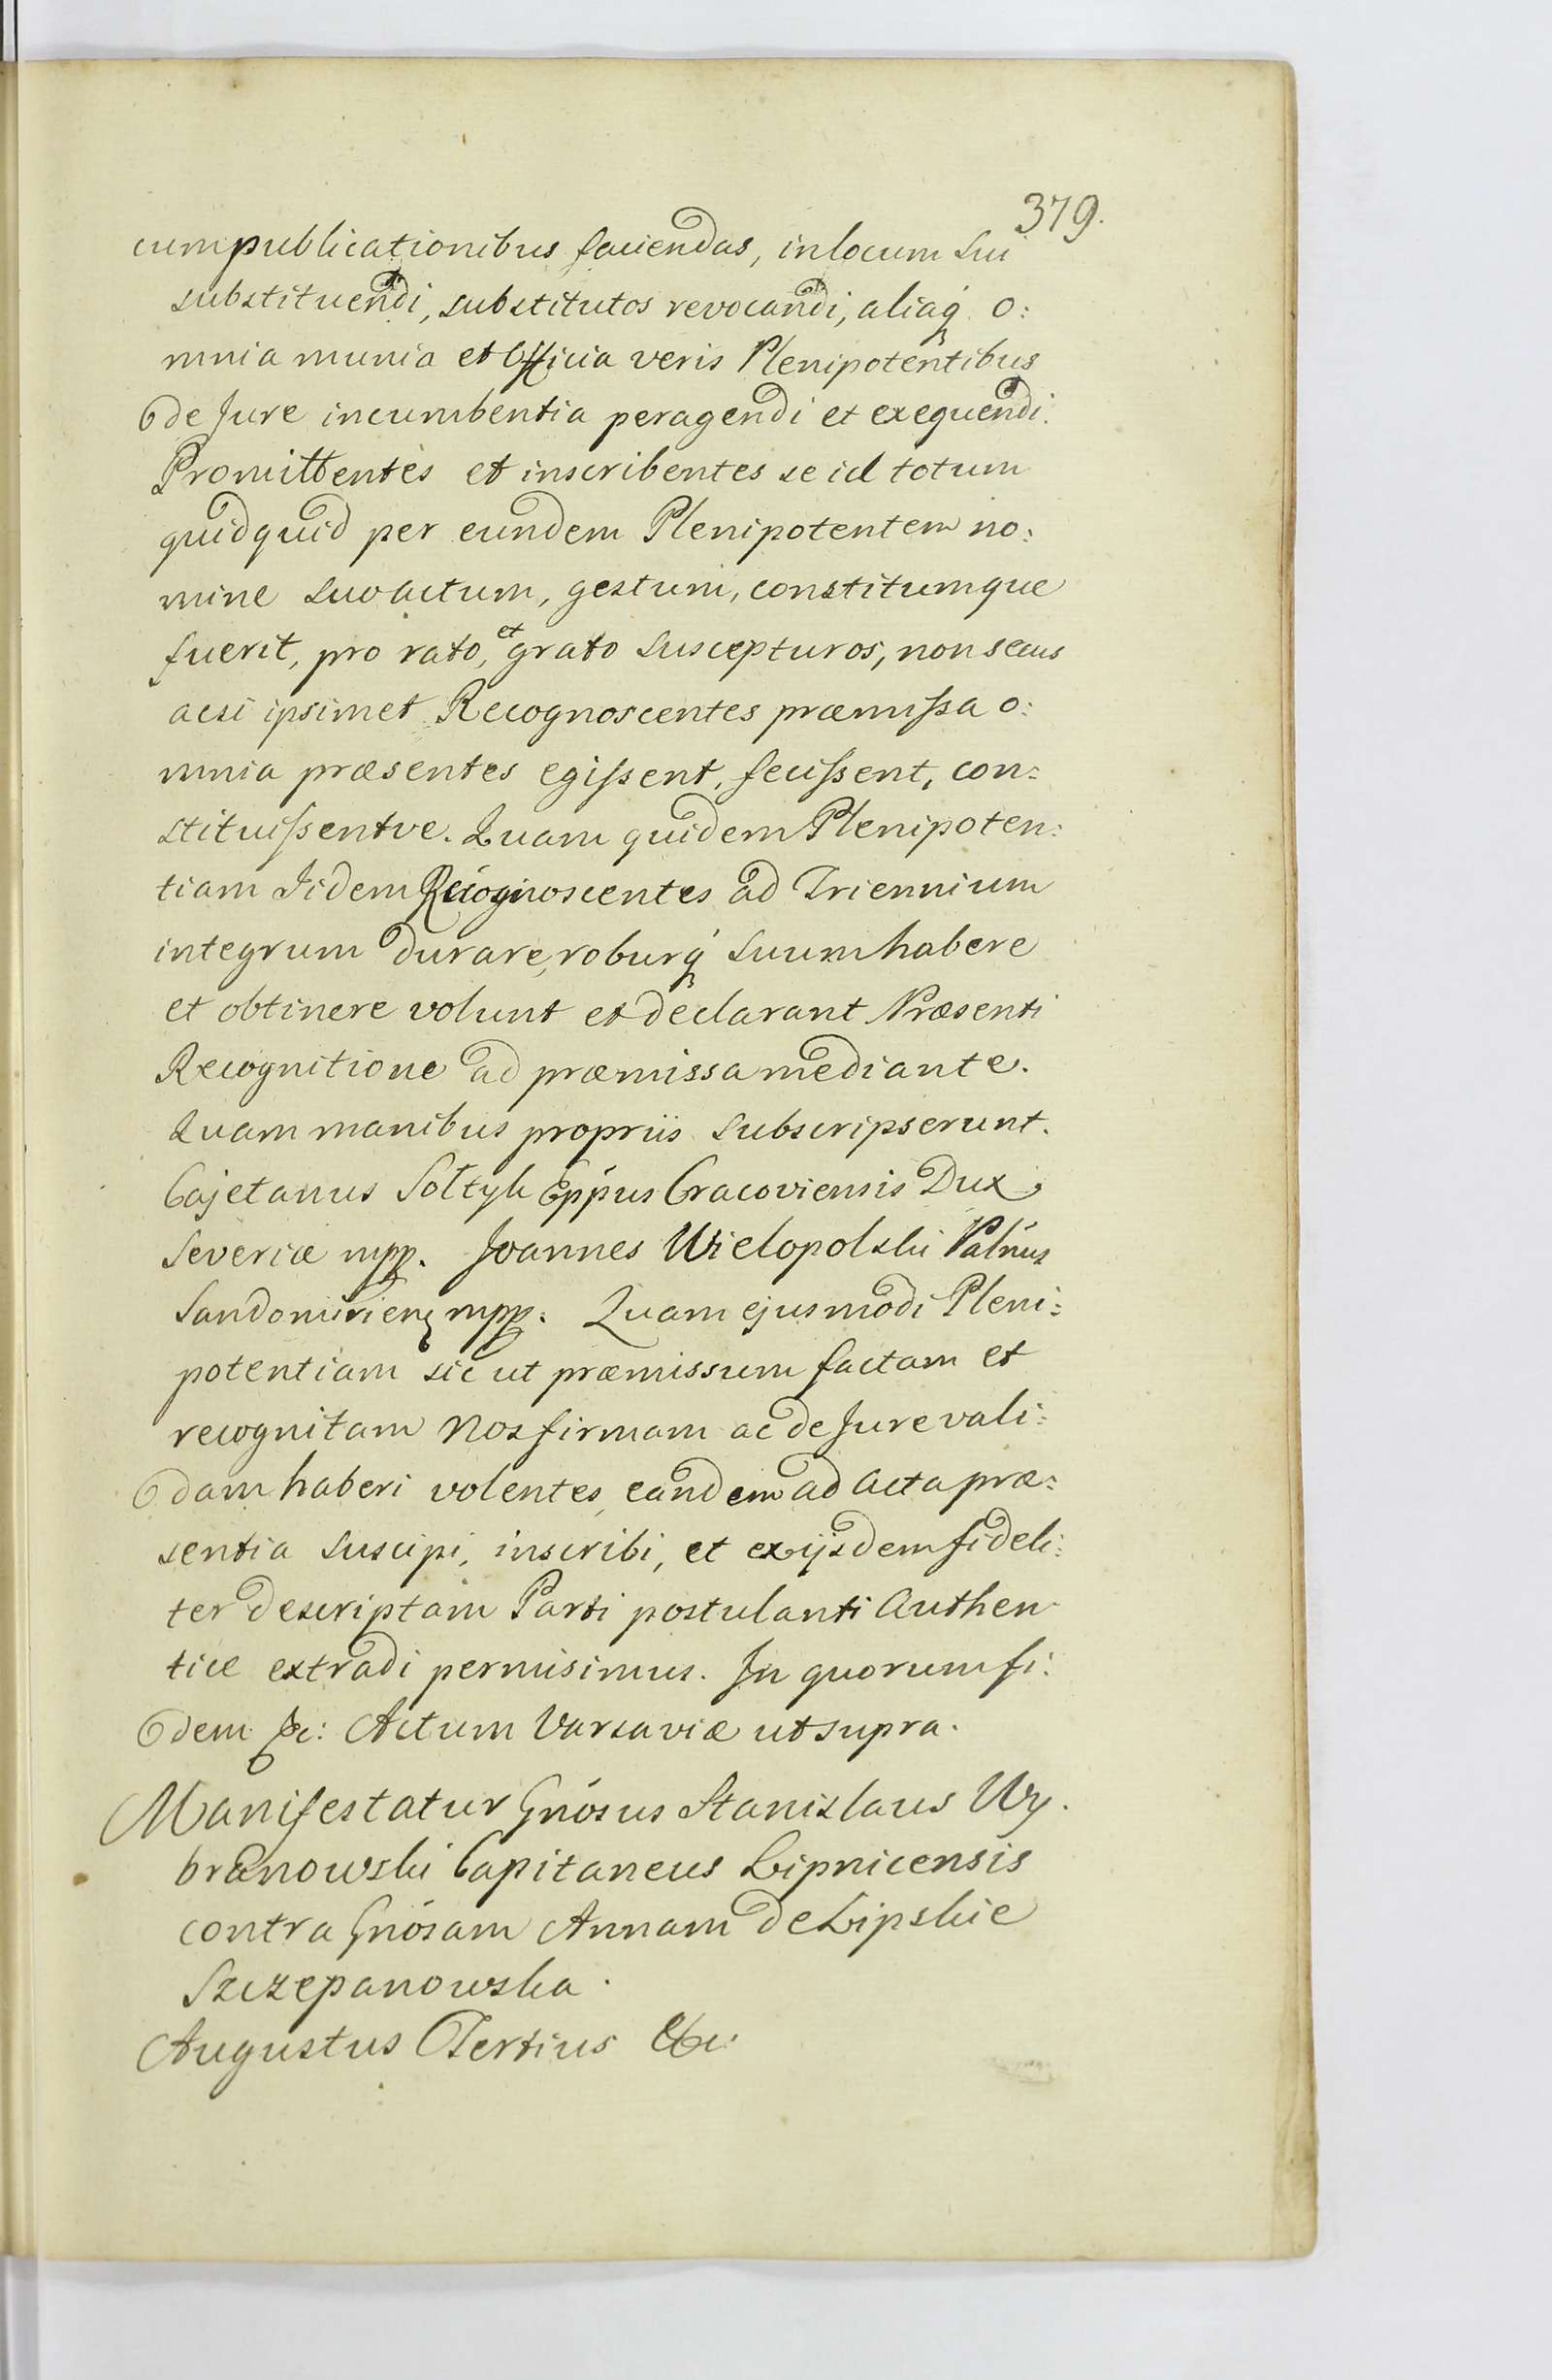 379.
cum publicationibus faciendas, in locum sui
substituendi, substitutos revocandi, aliaq́ o:
mnia munia et Officia veris Plenipotentibus
de Jure incumbentia peragendi et exequendi.
Promittentes et inscribentes se id totum
quidquid per eundem Plenipotentem no:
mine suo actum, gestum, constitumque
fuerit, pro rato, et grato suscepturos, non secus
acsi ipsimet Recognoscentes præmissa o:
mnia præsentes egissent, fecissent, con:
stituissentve. Quam quidem Plenipoten:
tiam Iidem Recognoscentes ad Triennium
integrum durare, roburq́ suum habere
et obtinere volunt et declarant Præsenti
Recognitione ad præmissa mediante.
Quam manibus propriis subscripserunt.
Cajetanus Sołtyk Epṕus Cracoviensis Dux
Severiæ mpp. Joannes Wielopolski Palńus
Sandomirien mpp. Quam ejusmodi Pleni:
potentiam sic ut præmissum factam et
recognitam Nos firmam ac de Jure vali:
dam haberi volentes, eandem ad Acta præ:
sentia suscipi, inscribi, et ex ijsdem fideli:
ter descriptam Parti postulanti Authen
tice extradi permisimus. In quorum fi:
dem &c: Actum Varsaviæ ut supra.
Manifestatur Gńosus Stanislaus Wy.
branowski Capitaneus Lipnicensis
contra Gńosam Annam de Lipskie
Szczepanowska.
Augustus Tertius &c: